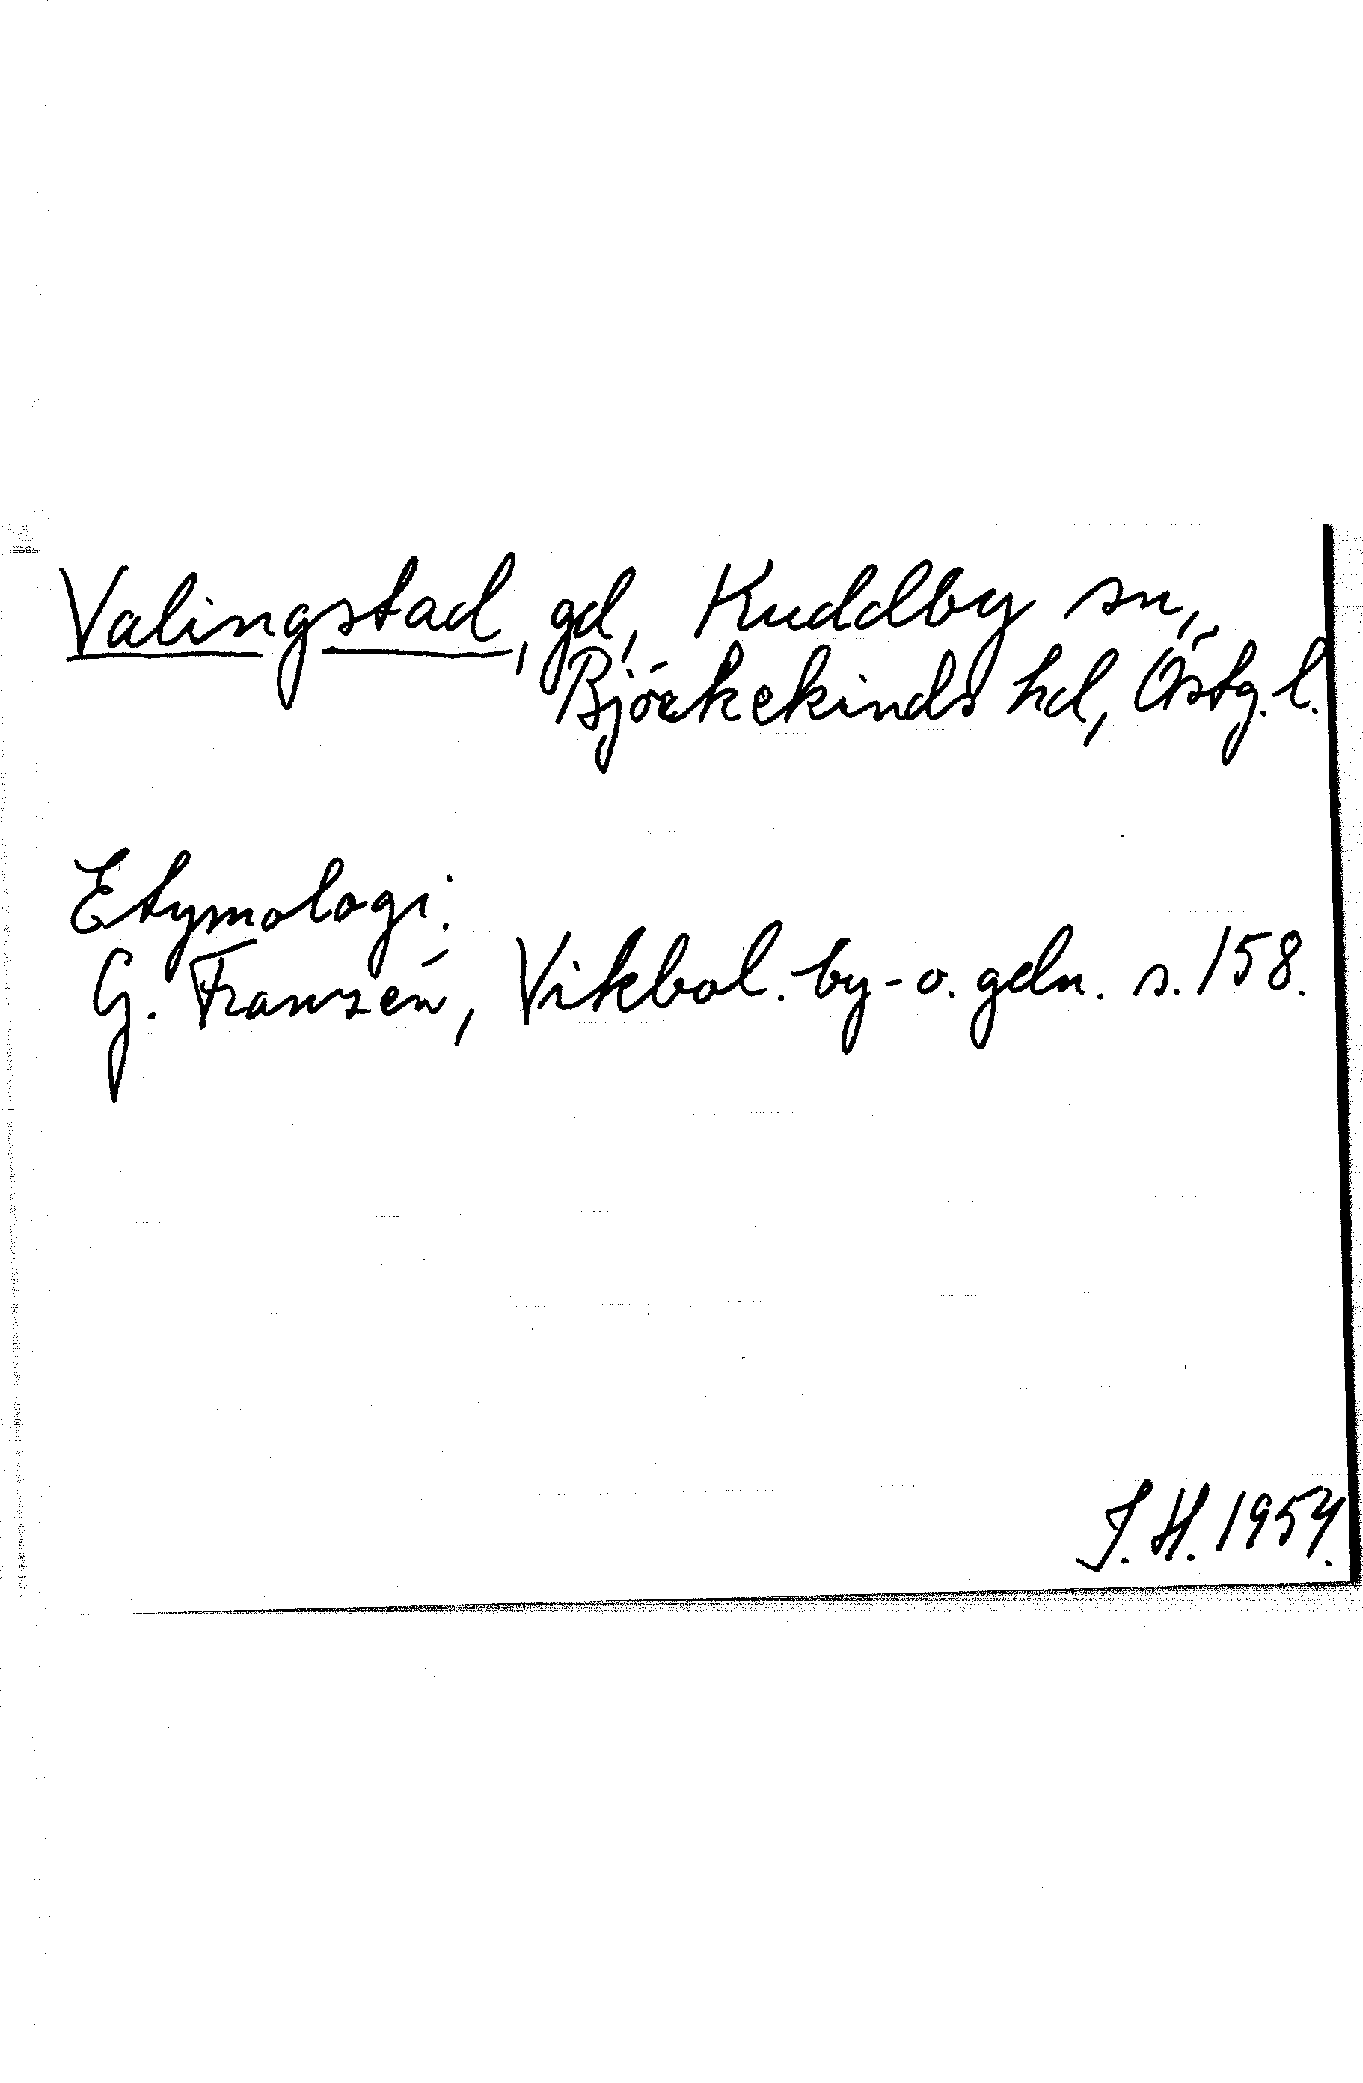 Valingstad, gd, Kuddby sn,
Björkekinds hd, Östg.l.
Etymologi.
G. Franzén, Vikbol. by- o. gdn. s. 158.
J. H. 1954.